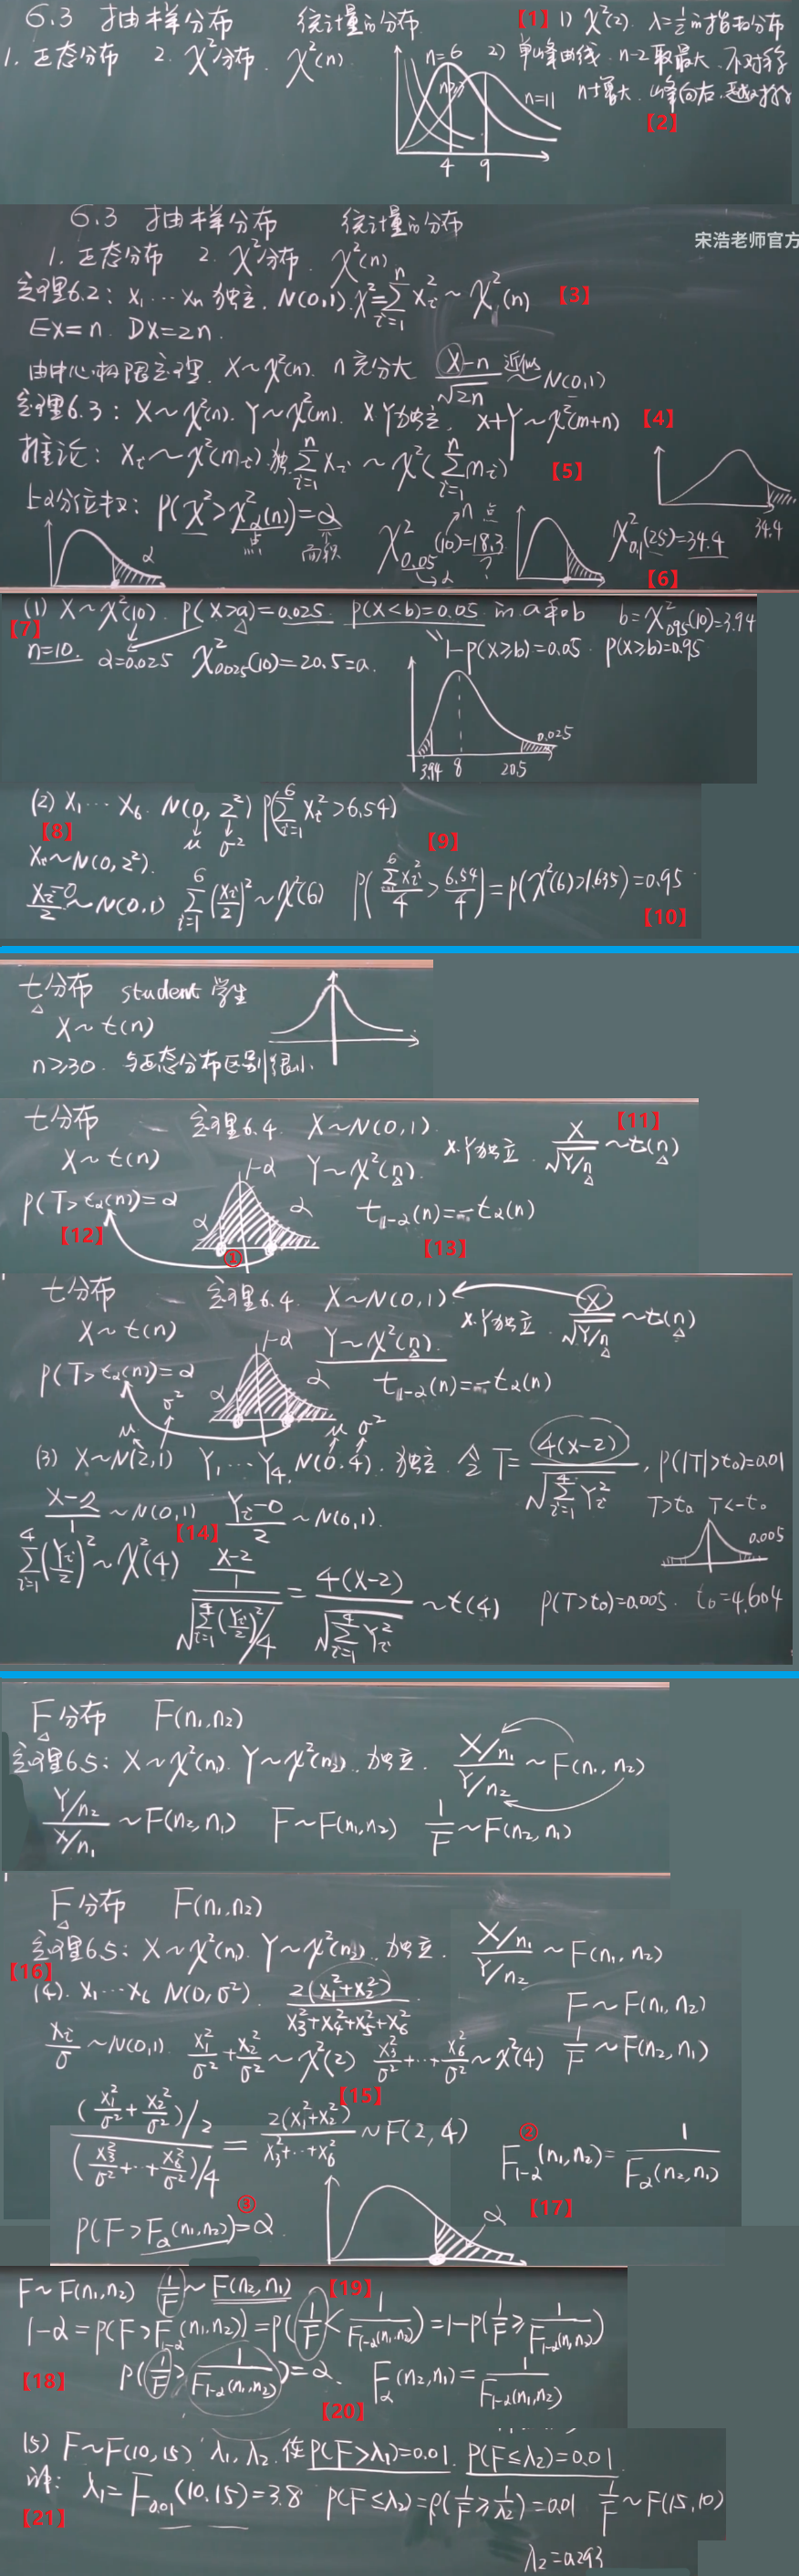 6.3 抽样分布 统计量的分布
【1】 1) χ²(2). λ=1/2的指数分布
1. 正态分布 2. χ²分布. χ²(n)
2) 单峰曲线. n-2取最大. 不对称
n=6
n=11
n↑增大. 峰向右. 越对称
【2】
4 9
6.3 抽样分布 统计量的分布
宋浩老师官方
1. 正态分布 2. χ²分布. χ²(n)
定理6.2: X₁…Xₙ 独立. N(0,1). χ²=∑ᵢ₌₁ⁿXᵢ² ~ χ²(n) 【3】
EX=n. DX=2n.
由中心极限定理. X~χ²(n). n充分大 (X-n)/√(2n) 近似~ N(0,1)
定理6.3: X~χ²(n). Y~χ²(m). X Y独立. X+Y~χ²(m+n) 【4】
推论: Xᵢ~χ²(mᵢ) 独. ∑ᵢ₌₁ⁿXᵢ ~ χ²(∑ᵢ₌₁ⁿmᵢ) 【5】
上α分位数: P(χ²>χ²_α(n))=α
点 面积
α
χ²_0.05(10)=18.3
n 点
α ?
χ²_0.1(25)=34.4
34.4
【6】
【7】 (1) X~χ²(10). P(X>a)=0.025. P(X<b)=0.05 的a和b b=χ²_0.95(10)=3.94
n=10. α=0.025 χ²_0.025(10)=20.5=a.
1-P(X≥b)=0.05. P(X≥b)=0.95
0.025
3.94 8 20.5
【8】 (2) X₁…X₆. N(0, 2²) P(∑ᵢ₌₁⁶Xᵢ²>6.54)
μ σ²
【9】
Xᵢ~N(0,2²).
(Xᵢ-0)/2 ~N(0,1) ∑ᵢ₌₁⁶(Xᵢ/2)²~χ²(6) P(∑Xᵢ²/4 > 6.54/4)=P(χ²(6)>1.635)=0.95
【10】
t分布 student 学生
X~t(n)
n≥30. 与正态分布区别很小.
t分布 定理6.4. X~N(0,1). 【11】
X~t(n) Y~χ²(n). X.Y独立. X/√(Y/n) ~t(n)
P(T>t_α(n))=α
1-α
α α
t_{1-α}(n)=-t_α(n)
【12】 ① 【13】
t分布 定理6.4. X~N(0,1)
X~t(n) Y~χ²(n). X.Y独立. X/√(Y/n) ~t(n)
P(T>t_α(n))=α
1-α
α α
t_{1-α}(n)=-t_α(n)
μ σ² μ σ²
(3) X~N(2,1) Y₁…Y₄. N(0,4). 独立. 令T=4(X-2)/√(∑ᵢ₌₁⁴Yᵢ²), P(|T|>t₀)=0.01
(X-2)/1 ~N(0,1) 【14】 (Yᵢ-0)/2 ~N(0,1).
T>t₀ T<-t₀
0.005
∑ᵢ₌₁⁴(Yᵢ/2)²~χ²(4) ((X-2)/1)/√(∑ᵢ₌₁⁴(Yᵢ/2)²/4) = 4(X-2)/√(∑ᵢ₌₁⁴Yᵢ²) ~t(4) P(T>t₀)=0.005. t₀=4.604
F分布 F(n₁,n₂)
定理6.5: X~χ²(n₁). Y~χ²(n₂). 独立. (X/n₁)/(Y/n₂) ~F(n₁,n₂)
(Y/n₂)/(X/n₁) ~F(n₂,n₁) F~F(n₁,n₂) 1/F~F(n₂,n₁)
F分布 F(n₁,n₂)
定理6.5: X~χ²(n₁). Y~χ²(n₂). 独立. (X/n₁)/(Y/n₂) ~F(n₁,n₂)
【16】
(4). X₁…X₆ N(0,σ²). 2(X₁²+X₂²)/(X₃²+X₄²+X₅²+X₆²)
F~F(n₁,n₂)
Xᵢ/σ ~N(0,1). X₁²/σ²+X₂²/σ²~χ²(2) X₃²/σ²+…+X₆²/σ²~χ²(4) 1/F~F(n₂,n₁)
【15】
((X₁²/σ²+X₂²/σ²)/2)/((X₃²/σ²+…+X₆²/σ²)/4) = 2(X₁²+X₂²)/(X₃²+…+X₆²) ~F(2,4)
② F_{1-α}(n₁,n₂)=1/F_α(n₂,n₁)
【17】
③ P(F>F_α(n₁,n₂))=α
α
F~F(n₁,n₂) 1/F~F(n₂,n₁) 【19】
1-α=P(F>F_{1-α}(n₁,n₂))=P(1/F<1/F_{1-α}(n₁,n₂))=1-P(1/F≥1/F_{1-α}(n₁,n₂))
【18】 P(1/F≥1/F_{1-α}(n₁,n₂))=α. F_α(n₂,n₁)=1/F_{1-α}(n₁,n₂)
【20】
(5) F~F(10,15) λ₁,λ₂. 使P(F>λ₁)=0.01. P(F≤λ₂)=0.01
λ₁=F_0.01(10,15)=3.8 P(F≤λ₂)=P(1/F≥1/λ₂)=0.01 1/F~F(15,10)
【21】
λ₂=0.293